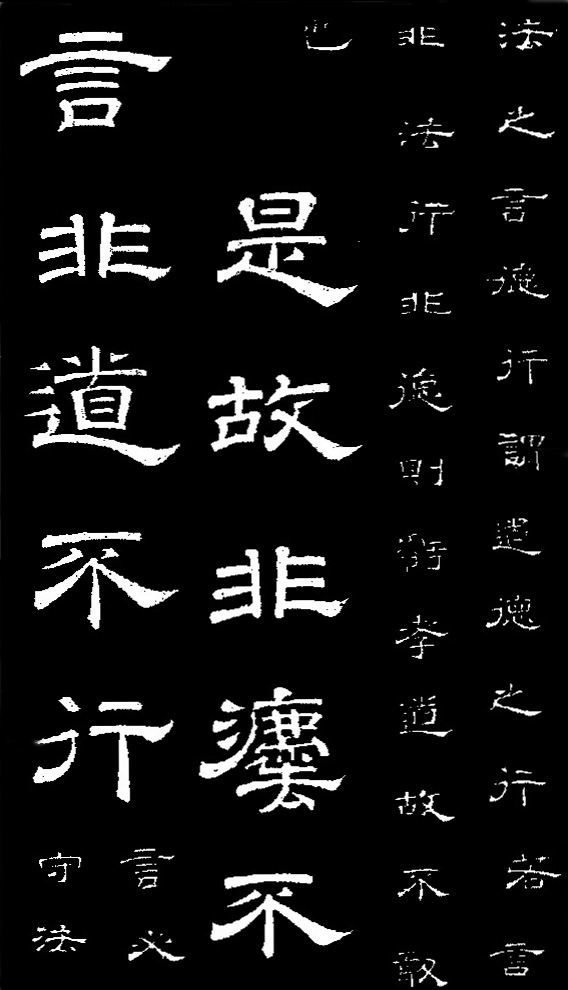 法之言德行謂道德之行若言
非法行非德則虧孝道故不敢
也
是故非灋不
言非道不行
言必
守法